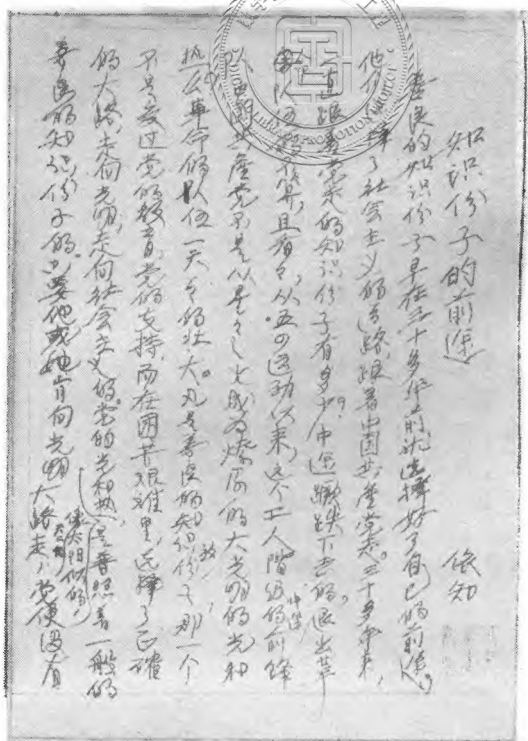 知识份子的前途
依知
善良的知识份子早在三十多年前就选择好了自己的前途。
他们选择了社会主义的道路,跟着中国共产党走。三十多年来,
一直跟着党走的知识份子有多少?中途蹶跌下去的,退出革
命队伍的不算,且看看,从五四运动以来,这个工人阶级的前锋
队中国共产党不是从星星之火成为燎原的大光明的光和
热么?革命的队伍一天天的壮大。凡是善良的知识份子那一个
不是受过党的教育,党的支持,而在困苦艰难里,选择了正确
的大路,走向光明,走向社会主义的。党的光和热,是普照着一般的
善良的知识份子的。只要他或她肯向光明大路走,党便没有
像太阳似的,
LIBRARY PROMOTION BUREAU